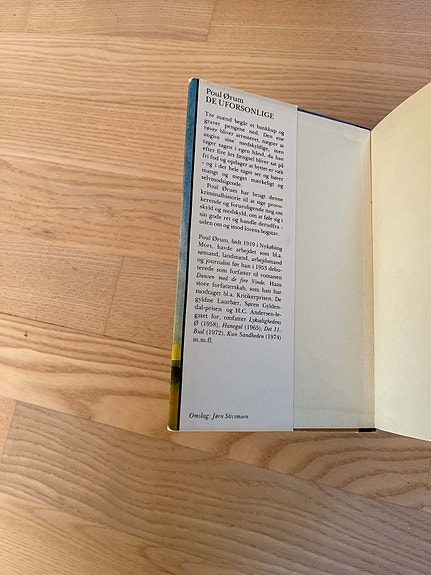 Poul Ørum
DE UFORSONLIGE
Tre mænd begår et bankkup og
graver pengene ned. Den ene
røver bliver arresteret, nægter at
angive sine medskyldige, men
tager sagen i egen hånd, da han
efter fire års fængsel bliver sat på
fri fod og opdager at byttet er væk
- og i det hele taget ser og hører
mangt og meget mærkeligt og
selvmodsigende.
Poul Ørum har brugt denne
kriminalhistorie til at sige provo-
kerende og foruroligende ting om
skyld og medskyld, om at føle sig i
sin gode ret og handle derudfra -
uden om og imod lovens bogstav.
Poul Ørum, født 1919 i Nykøbing
Mors, havde arbejdet som bl.a.
sømand, landmand, arbejdsmand
og journalist før han i 1953 debu-
terede som forfatter til romanen
Dansen med de fire Vinde. Hans
store forfatterskab, som han har
modtaget bl.a. Kritikerprisen, De
gyldne Laurbær, Søren Gylden-
dal-prisen og H.C. Andersen-le-
gatet for, omfatter Lyksalighedens
Ø (1958), Hanegal (1965), Det 11.
Bud (1972), Kun Sandheden (1974)
m.m.fl.
Omslag: Jørn Stivimoen